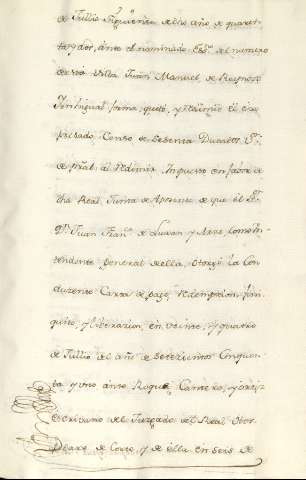 de Jullio siguiente de dho año de quaren-
ta y dos, ante el nominado Essno. del numero
de esta Villa Juan Manuel de Reynoso
En igual forma, quitò, y redimió el ex-
presado, Censo de Sesenta Ducados
de pral. al redimir Impuesto en favor de
dha Real Junta de Aposento de que el Sr.
Dn. Juan Franco. de Luxan y Arze como In-
tendente General de ella, otorgò la con-
ducente Carta de pago, redempcion, fin-
quito, y liberacion, en veinte, y quatro
de Jullio del año de setecientos Cinquen-
ta y uno ante Roque Cantero,
escribano del Juzgado del Real
de Corte, y de ella en seis de